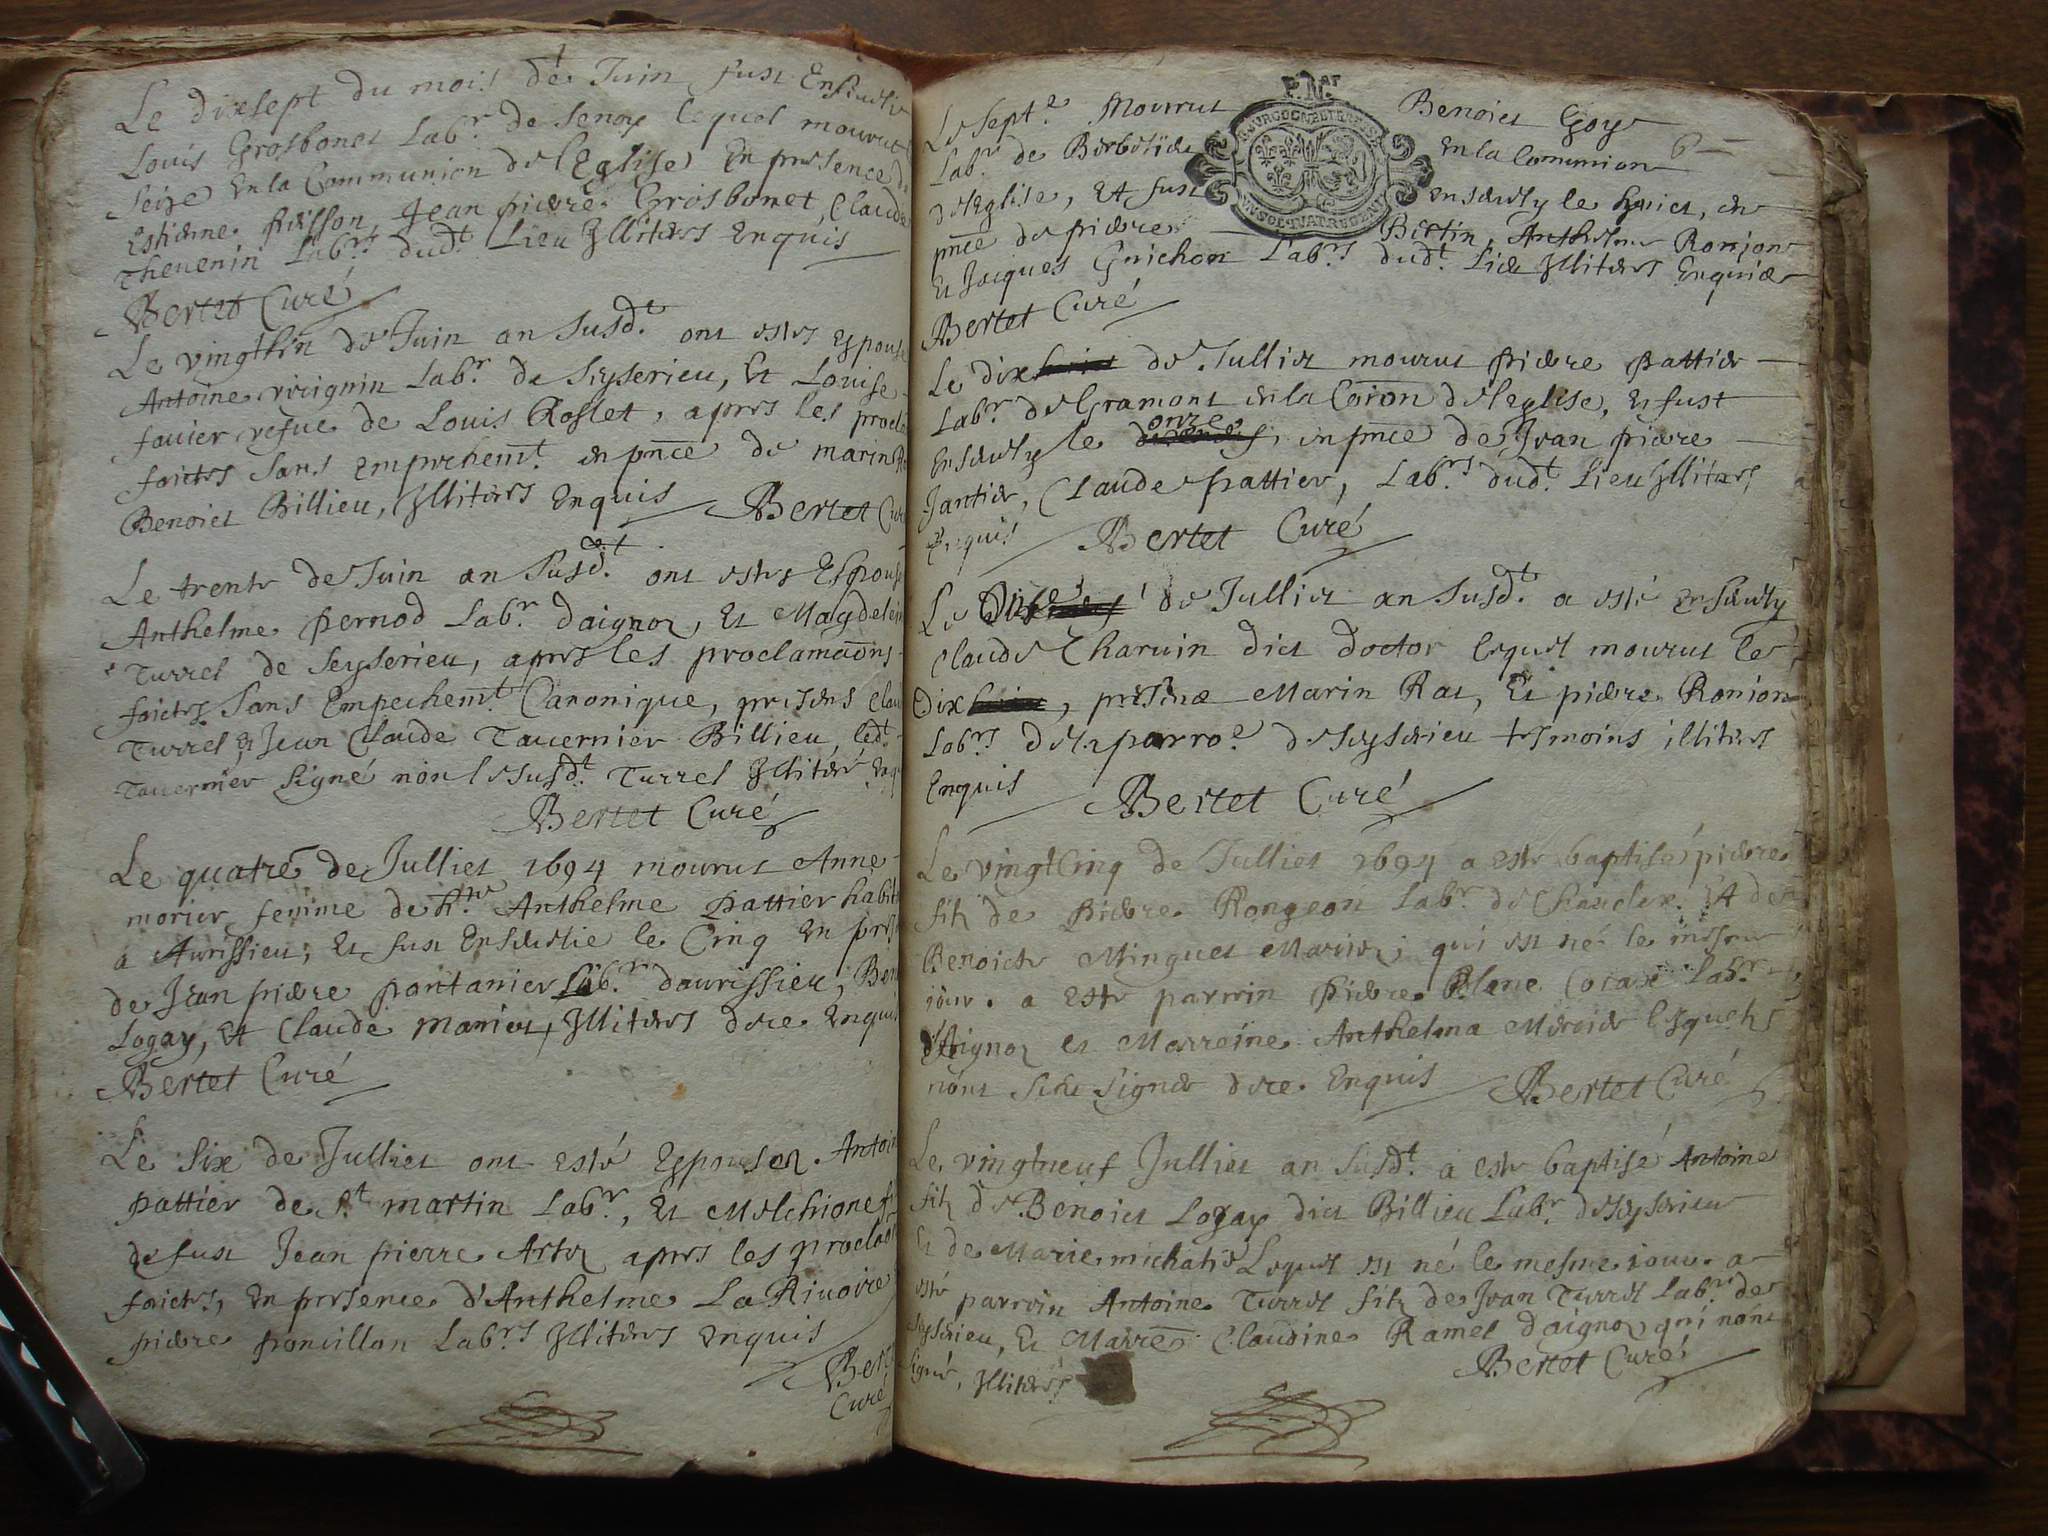 Le dixsept du mois de Juin fust Ensevely
Louis Grosbonet Labr. de Senoy lequel mourut
Seize en la Communion de l'Eglise En presence
Estienne Jean pierre Grosbonet, Claude
Thevenin Labrs. dudt. Lieu Illiteres Enquis
Bertet Curé
Le vingthin de Juin an susdt. ont estes Espouse
Antoine virignin Labr. de Seyserieu, Et Louise
favier vefue de Louis Roslet, apres les procla
faictes sans empechemt. en pnce de marin
Benoict Billieu, Illiteres Enquis Bertet Cur
Le trente de Juin an Susdt. ont estes Espouse
Anthelme pernod Labr. daignoz, Et Magdelein
Turrel de Seyserieu, apres les proclamaons
faictes sans Empechemt. Canonique, presens Clau
Turrel et Jean Claude Tavernier Billieu, ledt.
Tavernier signé non le susdt. Turrel Illiteré Enq
Bertet Curé
Le quatre de Julliet 1694 mourut Anne
morier femme de hte. Anthelme pattier habit
a Aurissieu, Et fust Ensevelie le Cinq en pres
de Jean piere pontanier Labr. daurissieu, Ben
Logay, Et Claude Illiteres de ce Enquis
Bertet Curé
Le Six de Julliet ont esté Espousez Antoin
pattier de St. martin Labr., Et Melchione f
de fust Jean pierre Artoz apres les proclao
faictes, En presence d'Anthelme La Rivoire
piere ponvillon Labrs. Illiteres Enquis
Bert
Curé
Le septe. Mourut Benoict Goy
Labr. de en la Comunion 6
de l'Eglise, Et fust ensevely le huict, en
pnce de piere Bertin, Anthelme Ronjon
Et Jacques Guichon Labrs. dudt. Lieu Illiteres Enquis
Bertet Curé
Le dix de Julliet mourut piere pattier
Labr. de Gramont en la Coion de l'eglise, Et fust
Ensevely le onze, en pnce de Jean piere
Jantier, Claude pattier, Labrs. dudt. Lieu Illiteres
Enquis Bertet Curé
Le de Julliet an Susdt. a esté ensevely
Claude Charvin dict doctor lequel mourut le
Dix, Marin Rat, Et piere Ronjon
Labrs. de la parroe. de Seyserieu tesmoins illiteres
Enquis Bertet Curé
Le vingtCinq de Julliet 1694 a este baptisé piere
filz de piere Rongeon Labr. de Et de
Benoicte Minguet Mariez, qui est né le mesme
jour. a este parrin piere Labr.
d'Aignoz et Marreine Anthelma Mercier lesquels
nont sceu signer de ce Enquis Bertet Curé
Le vingtneuf Julliet an susdt. a este baptisé Antoine
filz de Benoict Logay dict Billieu Labr. de Seyserieu
Et de Marie Lequel est né le mesme jour a
esté parrin Antoine Turrel filz de Jean Turrel Labr. de
Seyserieu, Et Marre. Claudine Ramel daignoz qui nont
signé, Illiteres Bertet Curé